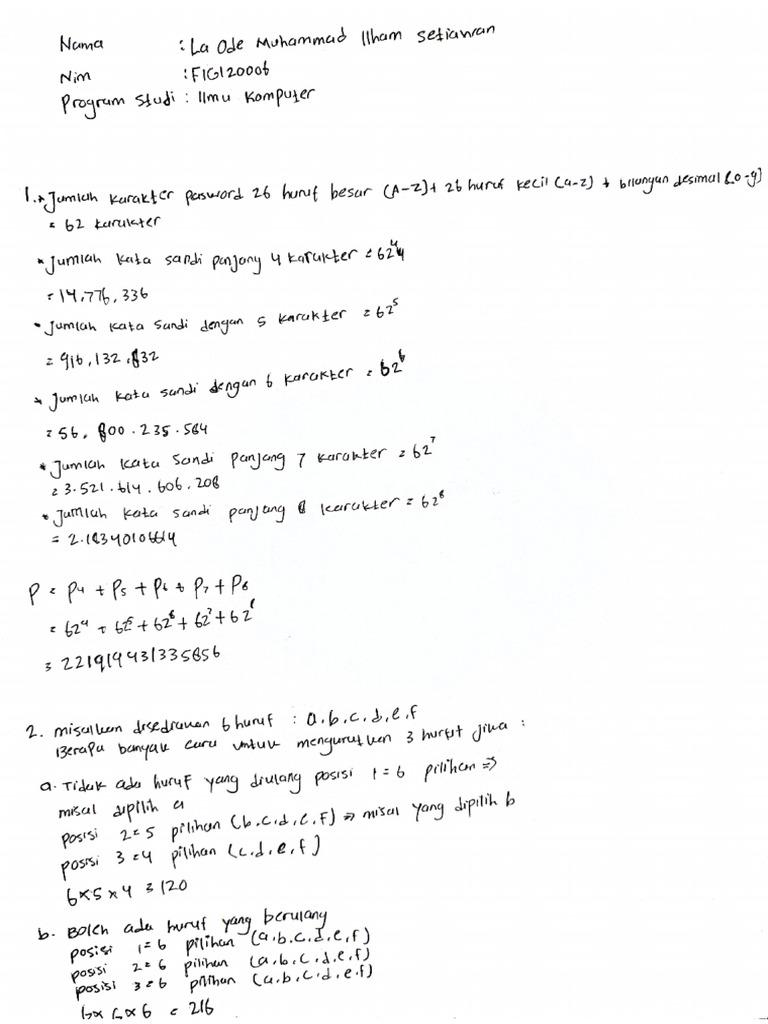 Nama : La Ode Muhammad Ilham Setiawan
Nim : F1G120006
Program Studi : Ilmu Komputer
1. * Jumlah karakter pasword 26 huruf besar (A-Z) + 26 huruf kecil (a-z) + bilangan desimal [0-9]
= 62 karakter
* Jumlah kata sandi panjang 4 karakter = 62⁴
= 14,776,336
* Jumlah kata sandi dengan 5 karakter = 62⁵
= 916,132,832
* Jumlah kata sandi dengan 6 karakter = 62⁶
= 56,800.235.584
* Jumlah kata sandi panjang 7 karakter = 62⁷
= 3.521.614.606.208
* Jumlah kata sandi panjang 8 karakter = 62⁸
P = P4 + P5 + P6 + P7 + P8
= 62⁴ + 62⁵ + 62⁶ + 62⁷ + 62⁸
= 221919431335856
2. misalkan disediakan 6 huruf : a,b,c,d,e,f
Berapa banyak cara untuk mengurutkan 3 huruf jika :
a. Tidak ada huruf yang diulang posisi 1 = 6 pilihan =>
misal dipilih a
posisi 2 = 5 pilihan (b,c,d,e,f) => misal yang dipilih b
posisi 3 = 4 pilihan (c,d,e,f)
6 x 5 x 4 = 120
b. Boleh ada huruf yang berulang
posisi 1 = 6 pilihan (a,b,c,d,e,f)
posisi 2 = 6 pilihan (a,b,c,d,e,f)
posisi 3 = 6 pilihan (a,b,c,d,e,f)
6 x 6 x 6 = 216